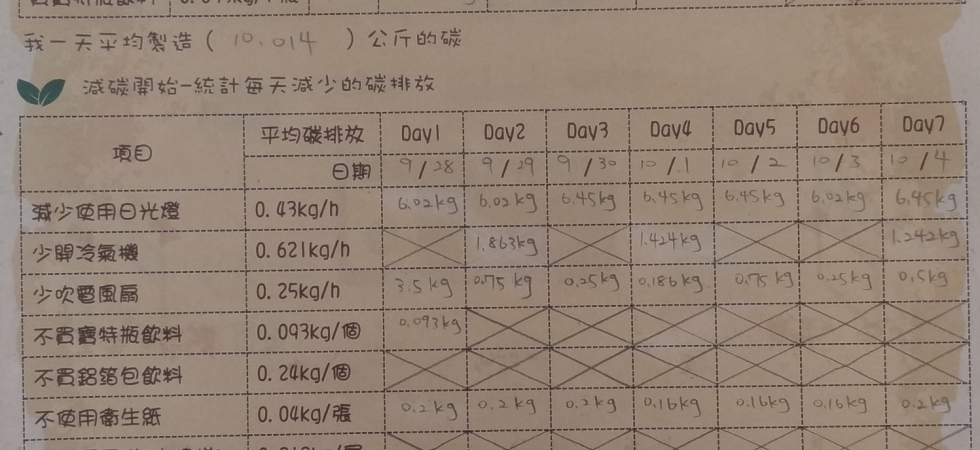 我一天平均製造( 10.014 )公斤的碳
減碳開始-統計每天減少的碳排放
項目 平均碳排放 Day1 Day2 Day3 Day4 Day5 Day6 Day7
日期 9/28 9/29 9/30 10/1 10/2 10/3 10/4
減少使用日光燈 0.43kg/h 6.02kg 6.02kg 6.45kg 6.45kg 6.45kg 6.02kg 6.45kg
少開冷氣機 0.621kg/h 1.863kg 1.424kg 1.242kg
少吹電風扇 0.25kg/h 3.5kg 0.75kg 0.25kg 0.186kg 0.75kg 0.25kg 0.5kg
不買寶特瓶飲料 0.093kg/個 0.093kg
不買鋁箔包飲料 0.24kg/個
不使用衛生紙 0.04kg/張 0.2kg 0.2kg 0.2kg 0.16kg 0.16kg 0.16kg 0.2kg